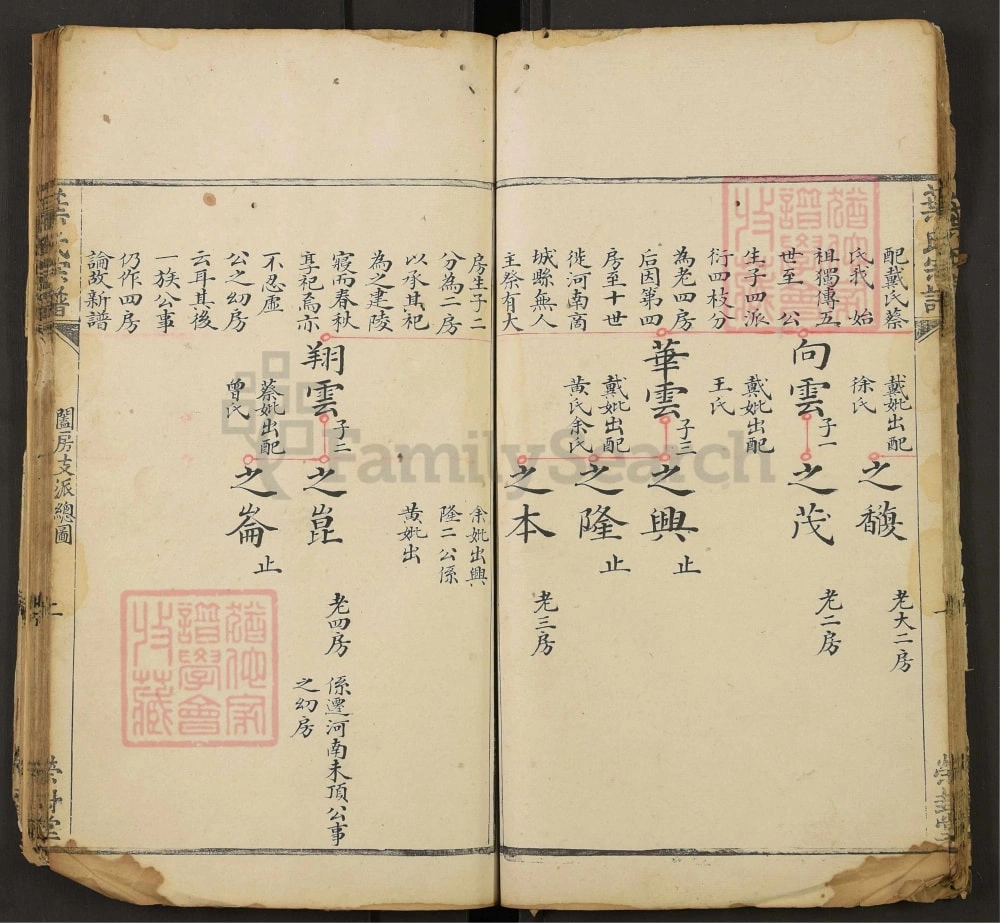 葉氏宗譜
配戴氏蔡
氏我始
祖獨傳五
世至公
生子四派
衍四枝分
為老四房
后因第四
房至十世
徙河南商
城縣無人
主祭有大
戴妣出配
徐氏
之馥
老大二房
向雲
子一
戴妣出配
王氏
之茂
老二房
華雲
子三
戴妣出配
黃氏余氏
之興
止
之隆
止
之本
老三房
房生子二
分為二房
以承其祀
為之建陵
寢而春秋
享祀焉亦
不忍虛
公之幼房
云耳其後
一族公事
仍作四房
論故新譜
余妣出興
隆二公係
黃妣出
翔雲
子二
蔡妣出配
曾氏
之崑
老四房
係遷河南未頂公事
之幼房
之崙
止
葉氏宗譜
闔房支派總圖
二
猶他家
譜學會
收藏
FamilySearch